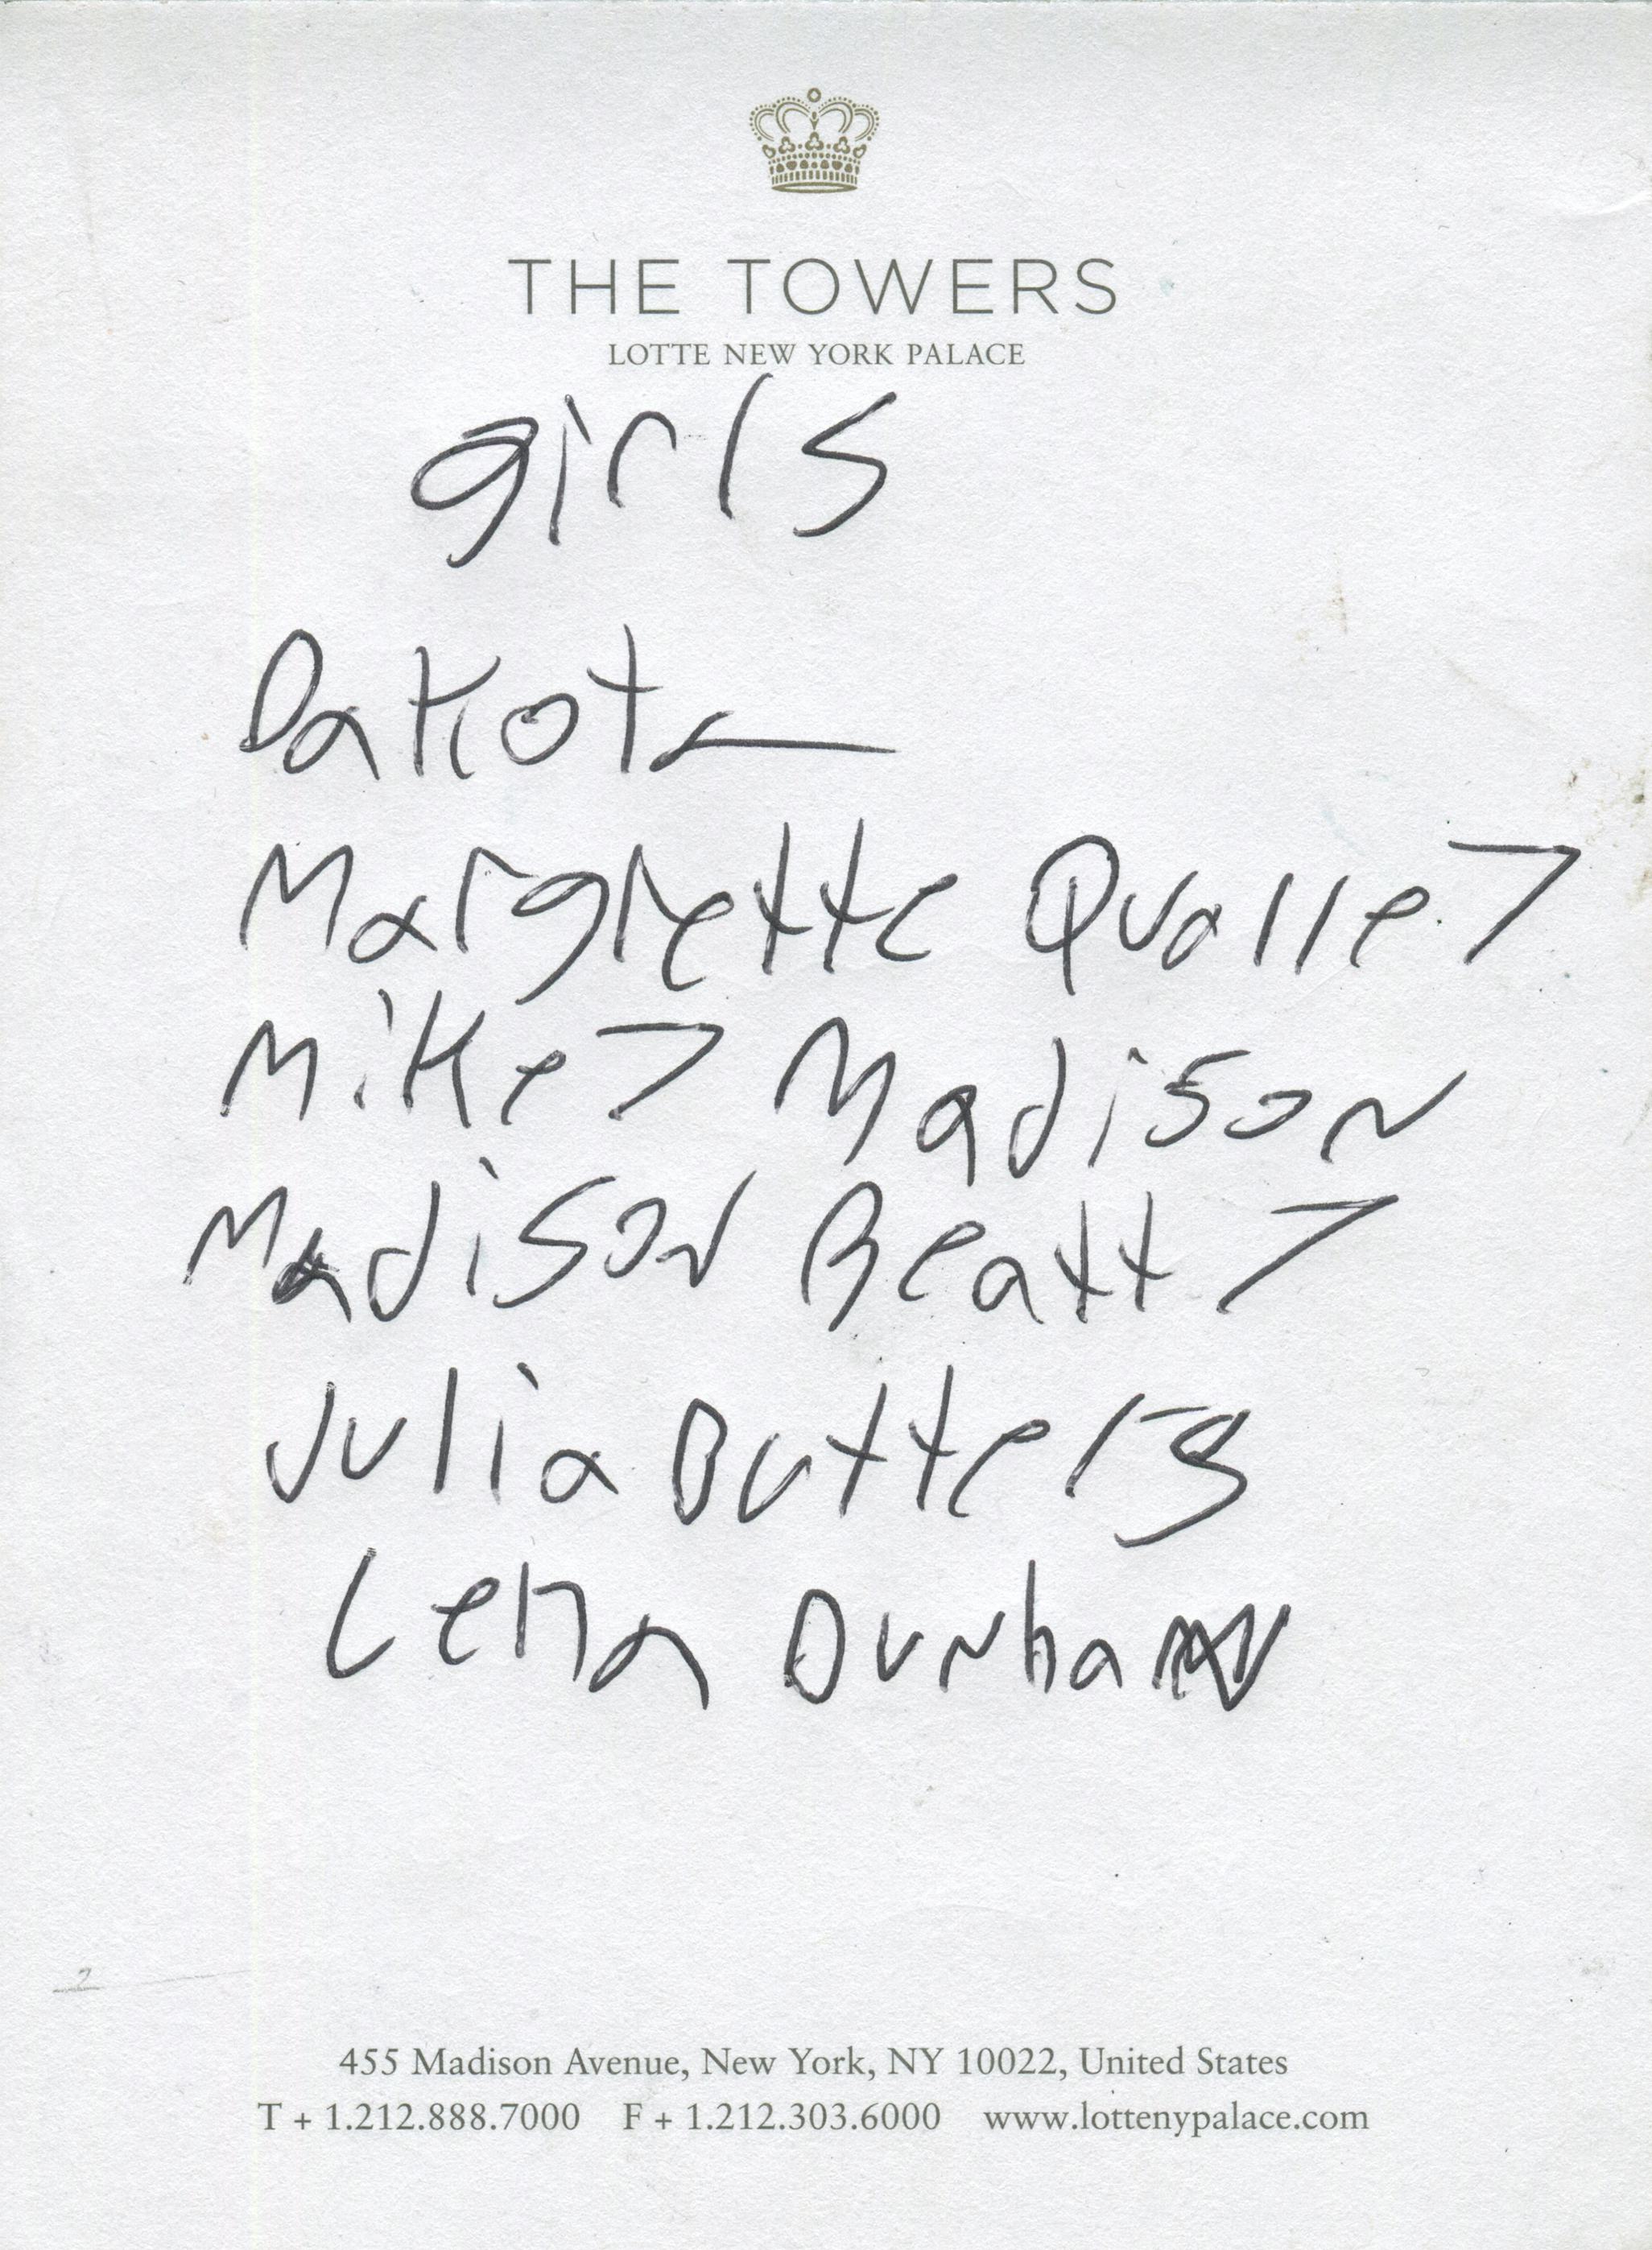 THE TOWERS
LOTTE NEW YORK PALACE
girls
Dakota
Margrette Qualley
Mikey Madison
Madison Beatty
Julia Butters
Lena Dunham
2
455 Madison Avenue, New York, NY 10022, United States
T + 1.212.888.7000 F + 1.212.303.6000 www.lottenypalace.com